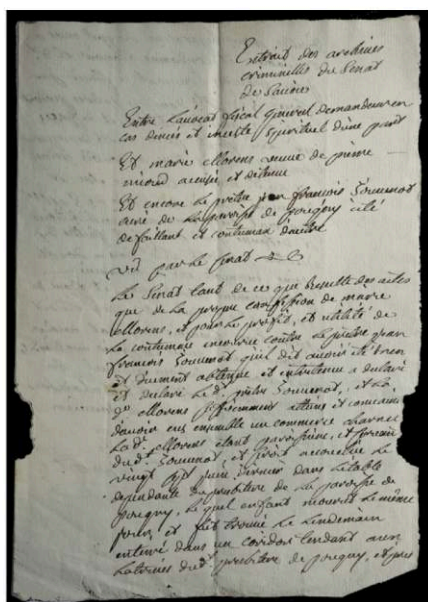 Extrait des archives
criminelles du Senat
de Savoie
Entre Lavocat fiscal General demandeur en
cas denis et inceste Spirituel dune part
Et marie Morens veuve de pierre
accusée et detenue
Et encore Le prêtre jean francois Souvenot
curé de La paroisse de pougny cité
defaillant et contumax dautre
Vu par Le Senat
Le Senat tant de ce que Resulte des actes
que de La propre confession de marie
Morens, et pour Le profit, et utilité de
La contumace encourue contre Le prêtre jean
francois Souvenot quil dit avoir été bien
et Duement obtenue et intentenue a declaré
et declare Le d.t prêtre Souvenot, et La
d.e Morens suffisamment atteins et convaincus
davoir eus ensemble un commerce charnel
La d.e Morens etant paroissiene, et
dud.t Souvenot, et pour accouchée Le
vingt juin dernier dans Letable
dependante du presbitere de La paroisse de
pougny, Le quel enfant mourut Le même
jour, et fut Le Lendemain
enterré dans un corridor tendant aux
Latrines dud.t presbitere de pougny, et